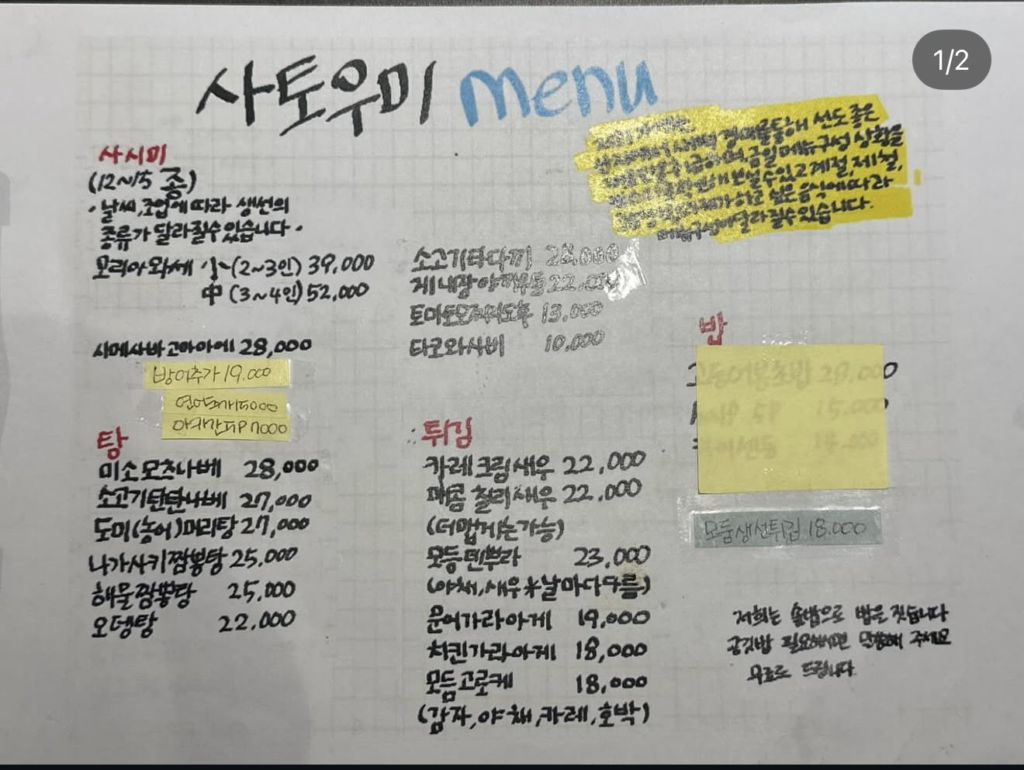 1/2
사토우미 menu
선도 좋은
금일메뉴구성 상황을
계절,제철,
하고 싶은 음식에 따라
메뉴구성이 달라질수있습니다.
사시미
(12~15 종)
• 날씨,조업에 따라 생선의
종류가 달라질수있습니다.
모리아와세 小(2~3인) 39,000
中 (3~4인) 52,000
시메사바 고마아에 28,000
방어추가 19.000
5000
7000
소고기타다끼 28,000
게내장 22.000
토마토모찌리도후 13.000
타코와사비 10,000
탕
미소모츠나베 28,000
소고기탄탄나베 27,000
도미(농어)머리탕 27,000
나가사키짬뽕탕 25,000
해물짬뽕탕 25,000
오뎅탕 22,000
튀김
카레크림새우 22,000
매콤 칠리새우 22,000
(더맵게는가능)
모듬덴뿌라 23,000
(야채,새우※날마다다름)
문어가라아게 19,000
치킨가라아게 18,000
모듬고로케 18,000
(감자,야채,카레,호박)
밥
모둠생선튀김 18.000
저희는 솥밥으로 밥을 짓습니다
공깃밥 필요하면 말씀해 주세요
무료로 드립니다.